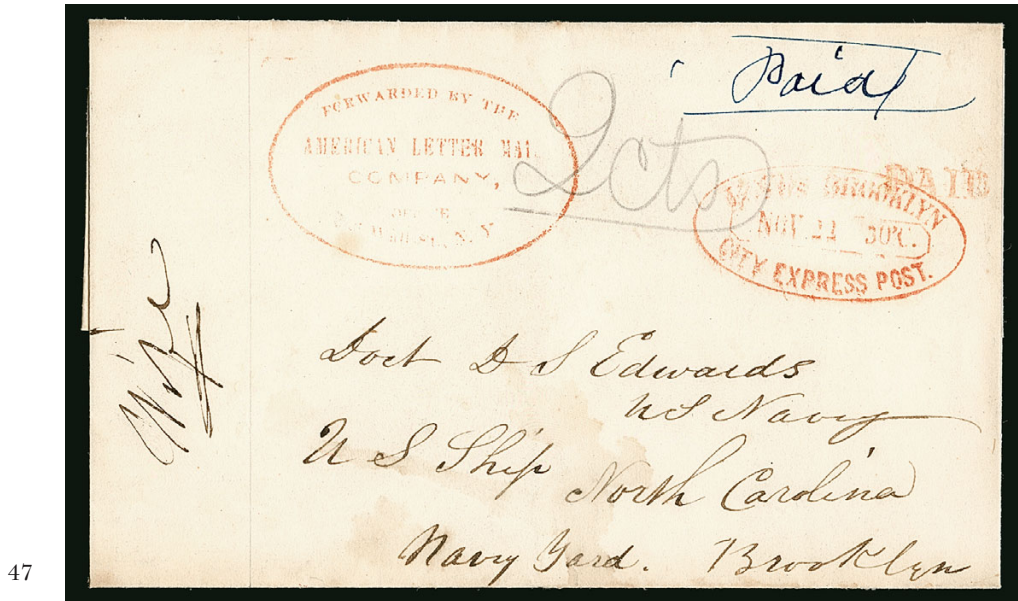 Paid
FORWARDED BY THE
AMERICAN LETTER MAI
COMPANY,
OFFICE
N.Y
2cts
PAID
BROOKLYN
NOV 22 3 O'C.
CITY EXPRESS POST.
Wife
Doct D S Edwards
US Navy
U S Ship North Carolina
Navy Yard. Brooklyn
47